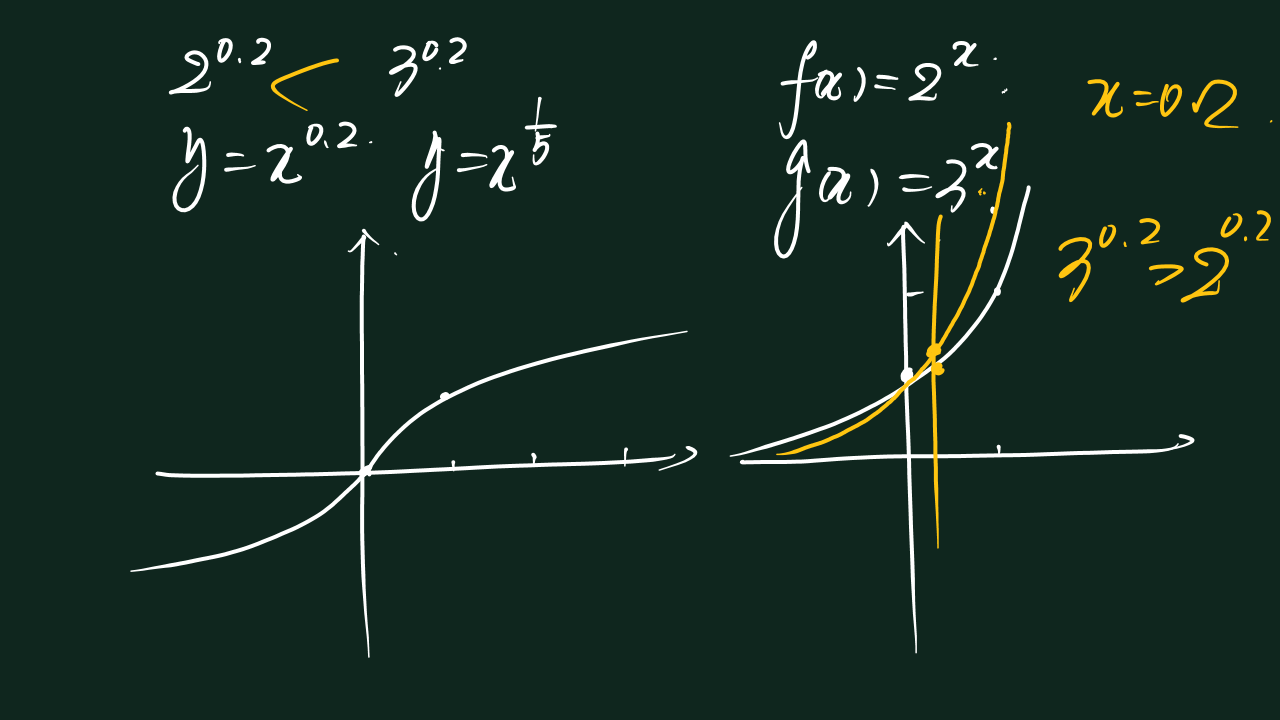 2^{0.2} < 3^{0.2}
y = x^{0.2} y = x^{\frac{1}{5}}
f(x) = 2^x
g(x) = 3^x
x = 0.2
3^{0.2} > 2^{0.2}